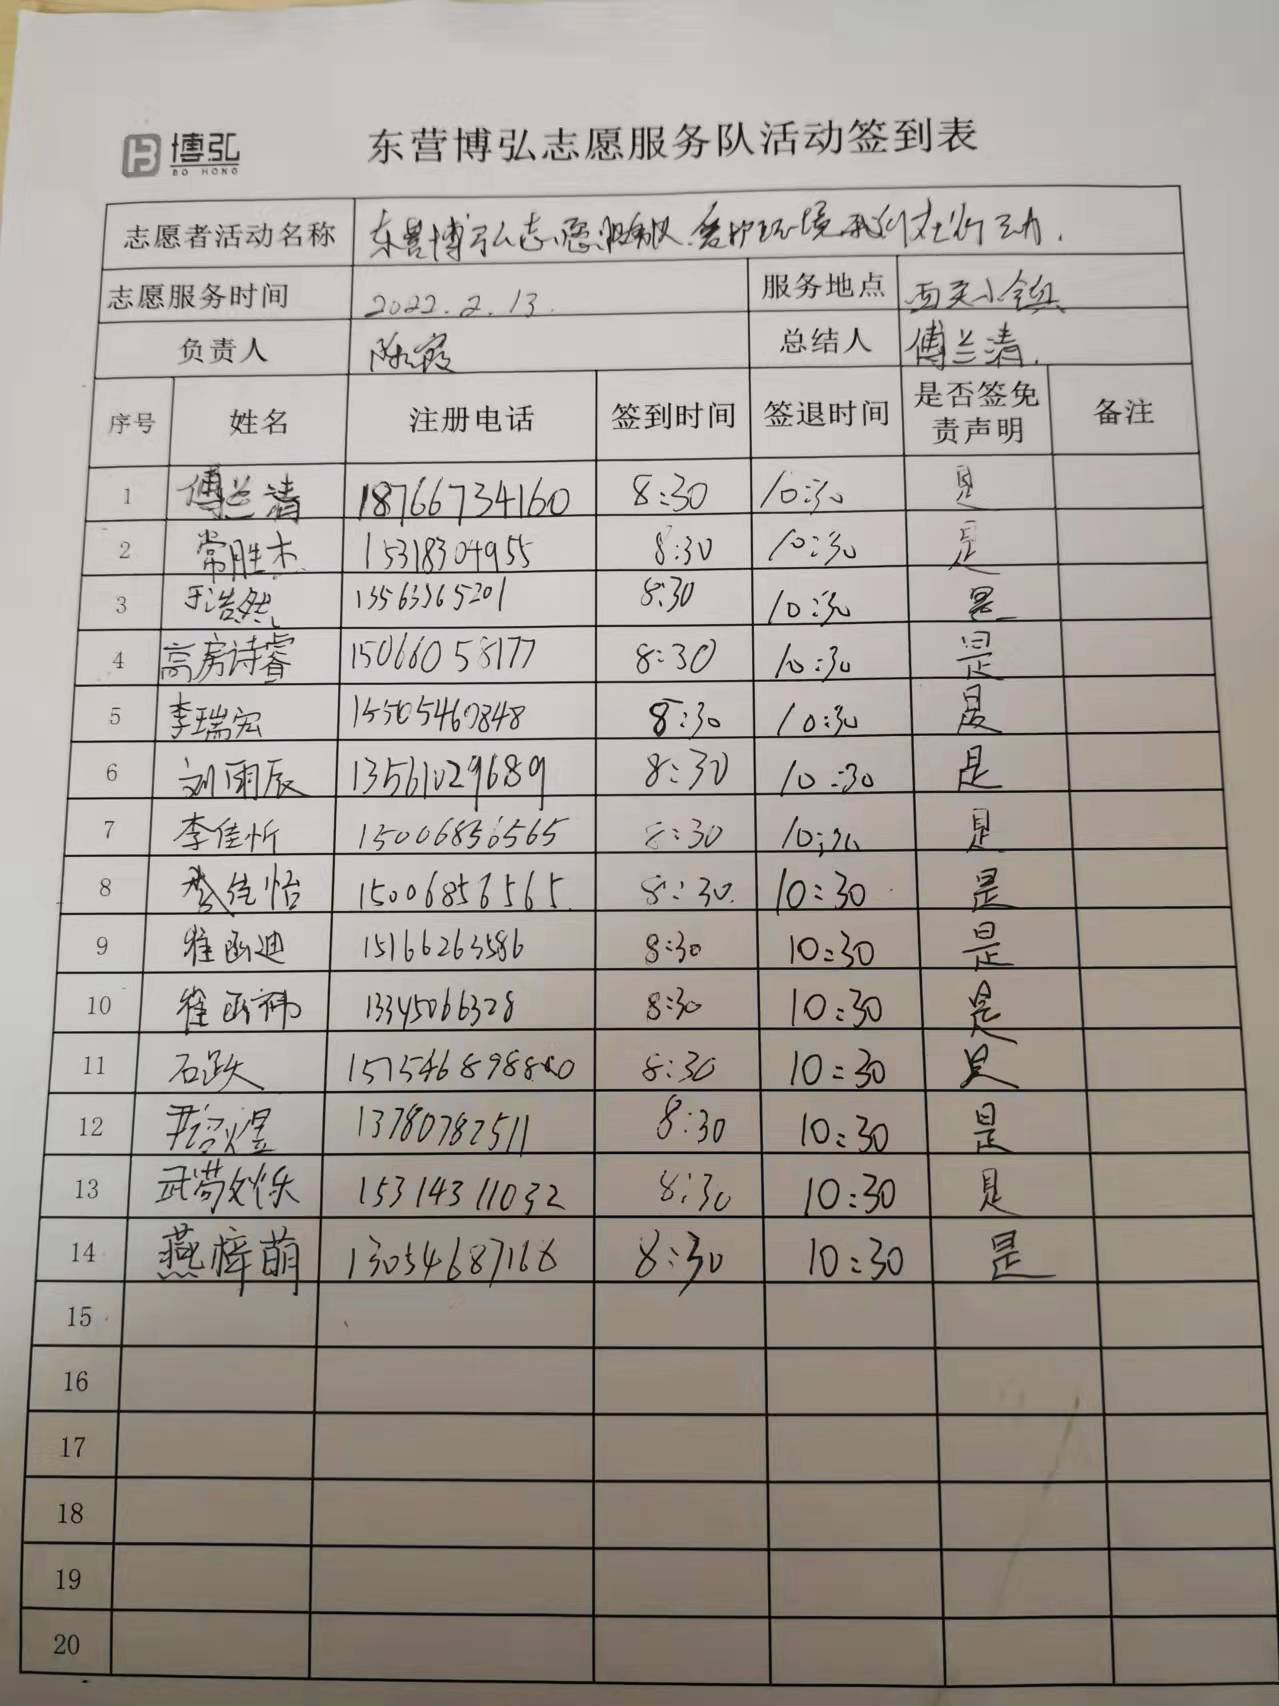 博弘
BO HONG
东营博弘志愿服务队活动签到表
志愿者活动名称 东营博弘志愿服务队.爱护环境我们在行动.
志愿服务时间 2022.2.13. 服务地点
负责人 陈霞 总结人 傅兰清.
序号 姓名 注册电话 签到时间 签退时间 是否签免责声明 备注
1 傅兰清 18766734160 8:30 10:30 是
2 常胜杰 15318304955 8:30 10:30 是
3 于浩然 13563365201 8:30 10:30 是
4 高房诗睿 15066058177 8:30 10:30 是
5 李瑞宏 15505467848 8:30 10:30 是
6 刘雨辰 13561029689 8:30 10:30 是
7 李佳忻 15006856565 8:30 10:30 是
8 李佳怡 15006856565. 8:30. 10:30 是
9 崔函迪 15166263586 8:30 10:30 是
10 崔函祎 13345066328 8:30 10:30 是
11 石跃 8:30 10:30 是
12 13780782511 8:30 10:30 是
13 15314311032 8:30 10:30 是
14 燕梓萌 13054687166 8:30 10:30 是
15
16
17
18
19
20